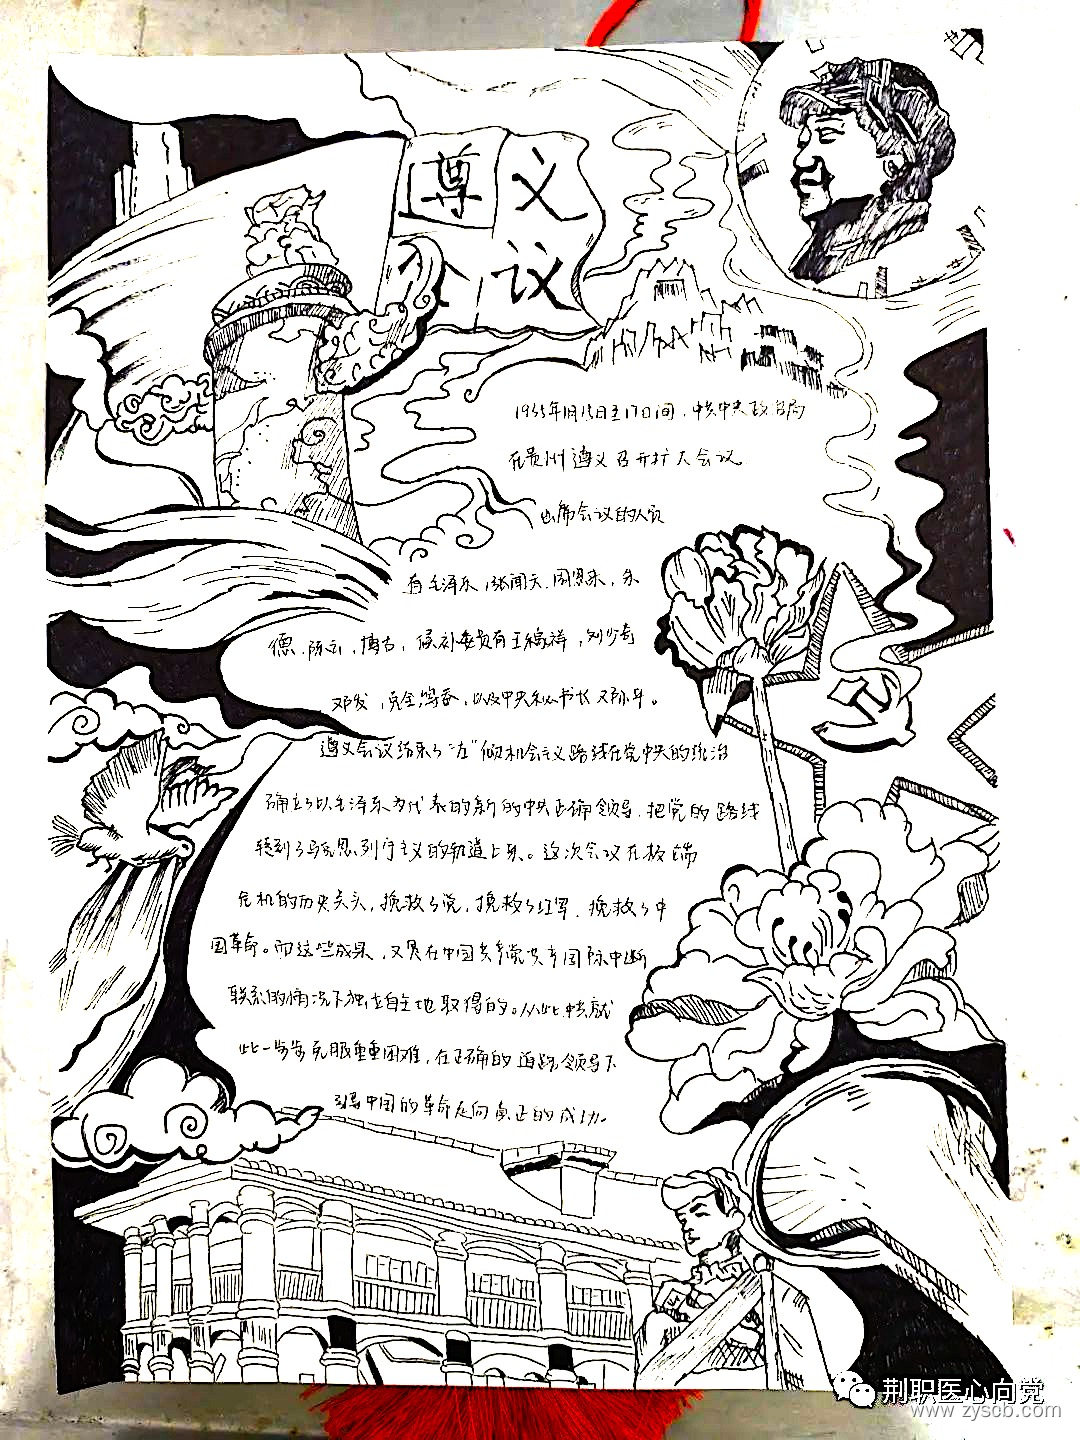 尊义
会议
1935年1月15日至17日间，中共中央政治局
在贵州遵义召开扩大会议
出席会议的人员
有毛泽东，张闻天，周恩来，朱
德，陈云，博古，候补委员有王稼祥，刘少奇
邓发，克全鸣春，以及中央秘书长邓小平。
遵义会议结束了"左"倾机会主义路线在党中央的统治
确立了以毛泽东为代表的新的中央正确领导，把党的路线
转到了马克思列宁主义的轨道上来。这次会议在极端
危机的历史关头，挽救了党，挽救了红军，挽救了中
国革命。而这些成果，又是在中国共产党共产国际中断
联系的情况下独立自主地取得的。从此中共就
此一步步克服重重困难，在正确的道路领导下
引导中国的革命走向真正的成功。
荆职医心向党
www.zyscb.com